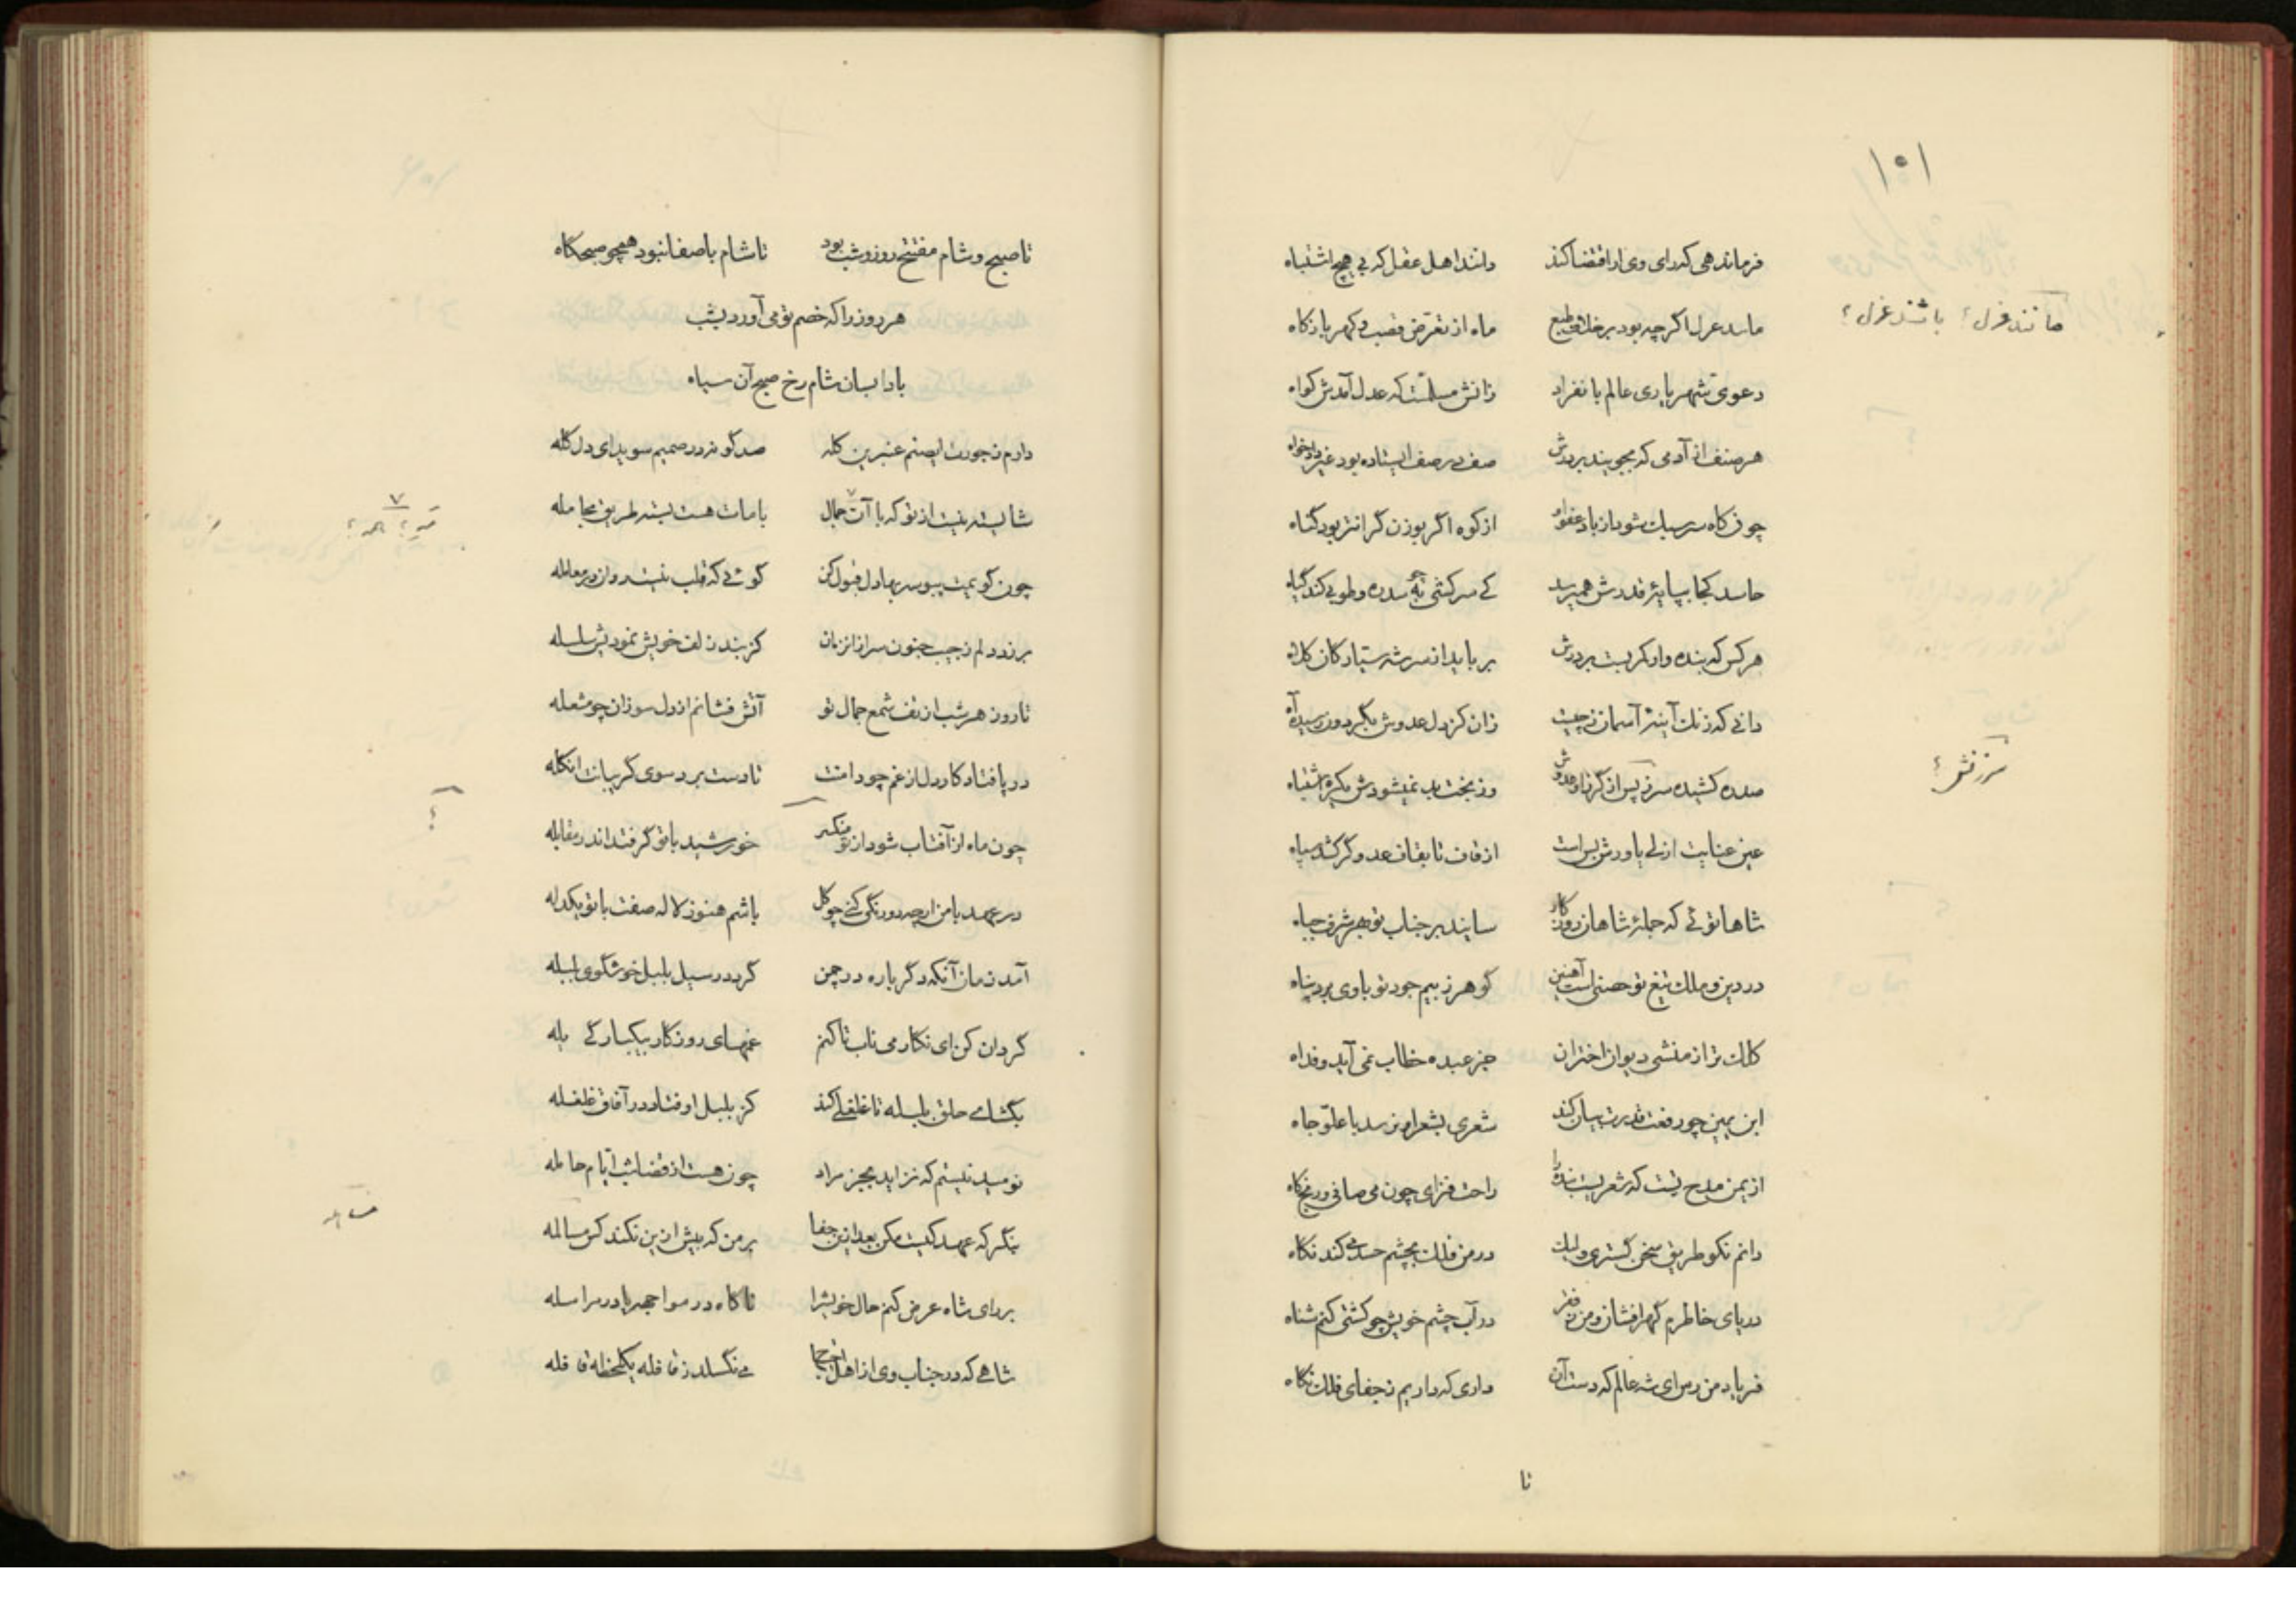 ۱۰۱
فرماندهی که رای وی ار اقتضا کند دانند اهل عقل که بی هیچ اشتباه
مانند عزل اگر چه بود بر خلاف طبع ماه از تعرض قصب و کهربا ز کاه
مانند غزل؛ باشد غزل؛
دعوی شهریاری عالم بانفراد زانش مسلمست که عدل آمدش کواه
هر صنف از آدمی که بجویند بر درش صف در صف ایستاده بود غیر دادخواه
چون کاه سبک شود از باد عفو او از کوه اگر بوزن گرانتر بود گناه
حاسد کجا بپایهٔ قدرش همیرسد کی سرکشی به سدره و طوبی کند گیاه
هر کس که بنده وار کمر بست بر درش بر باید از سر شه سیارکان کلاه
دانی که زنگ آینهٔ آسمان ز چیست زان کز دل عدوش بگردون رسیده آه
صده کشیده سر ز پس از گرز او عدوش وز بخت بد نمیشودش یکره انتباه
سرزنش؛
عین عنایت ازلی یاورش بس است از قاف تا بقاف عدو گر کشد سپاه
شاها توئی که جملهٔ شاهان روزکار سایند بر جناب تو بهر شرف جباه
در دین و ملک تیغ تو حصنی است آهنین گوهر ز بیم جود تو با وی برد پناه
کلک ترا ز منشی دیوان اختران جز عبده خطاب نمی آید و فداه
ابن یمین چو رفعت قدرت بیان کند شعری بشعر او نرسد با علو جاه
از یمن مدح تست که شعریست بنده را راحت فزای چون می صافی و رنج کاه
دانم نکو طریق سخن گستری ولیک در من فلک بچشم حسد می کند نکاه
دریای خاطرم گهر افشان و من ز فقر در آب چشم خویش چو کشتی کنم شناه
فریاد من رس ای شه عالم که دست آن داری که داریم ز جفای فلک نکاه
تا
تا صبح و شام مفتتح روز و شب بود تا شام با صفا نبود همچو صبحکاه
هر روز را که خصم تو می آورد بشب
بادا بسان شام رخ صبح آن سیاه
دارم ز جورت ای صنم عنبرین کله صد گونه در صمیم سویدای دل گله
شایسته نیست از تو که با آن جمال با مات هست بسته طریق مجامله
چون گویمت ببوسه بها دل قبول کن گوئی که قلب نیست روان در معامله
بر زد دلم ز جیب جنون سر از آنزمان کز بند زلف خویش نمودیش سلسله
تا روز هر شب از تف شمع جمال تو آتش فشانم از دل سوزان چو مشعله
در پا فتاد کار دل از غم چو دامنت تا دست برد سوی گریبانت انگله
چون ماه از آفتاب شود از تو منکسر خورشید با تو گر فتد اندر مقابله
در عهد با من ار چه دورنگی کنی چو کل باشم هنوز لاله صفت با تو یکدله
آمد زمان آنکه دگر باره در چمن گردد رسیل بلبل خوشگوی بلبله
گردان کن ای نکار می ناب تا کنم غمهای روزکار بیکبارگی یله
بگشای حلق بلبله تا غلغلی کند کز بلبل اوفتاد در آفاق غلغله
نومید نیستم که نزاید بجز مراد چون هست از قضا شب ایام حامله
بنگر که عهد کیست مکن بعد ازین جفا بر من که بیش ازین نکند کس مسالمه
بر رای شاه عرض کنم حال خویشرا ناکاه در مواجهه یا در مراسله
شاهی که در جناب وی از اهل می نگسلد ز قافله یکلحظه قافله